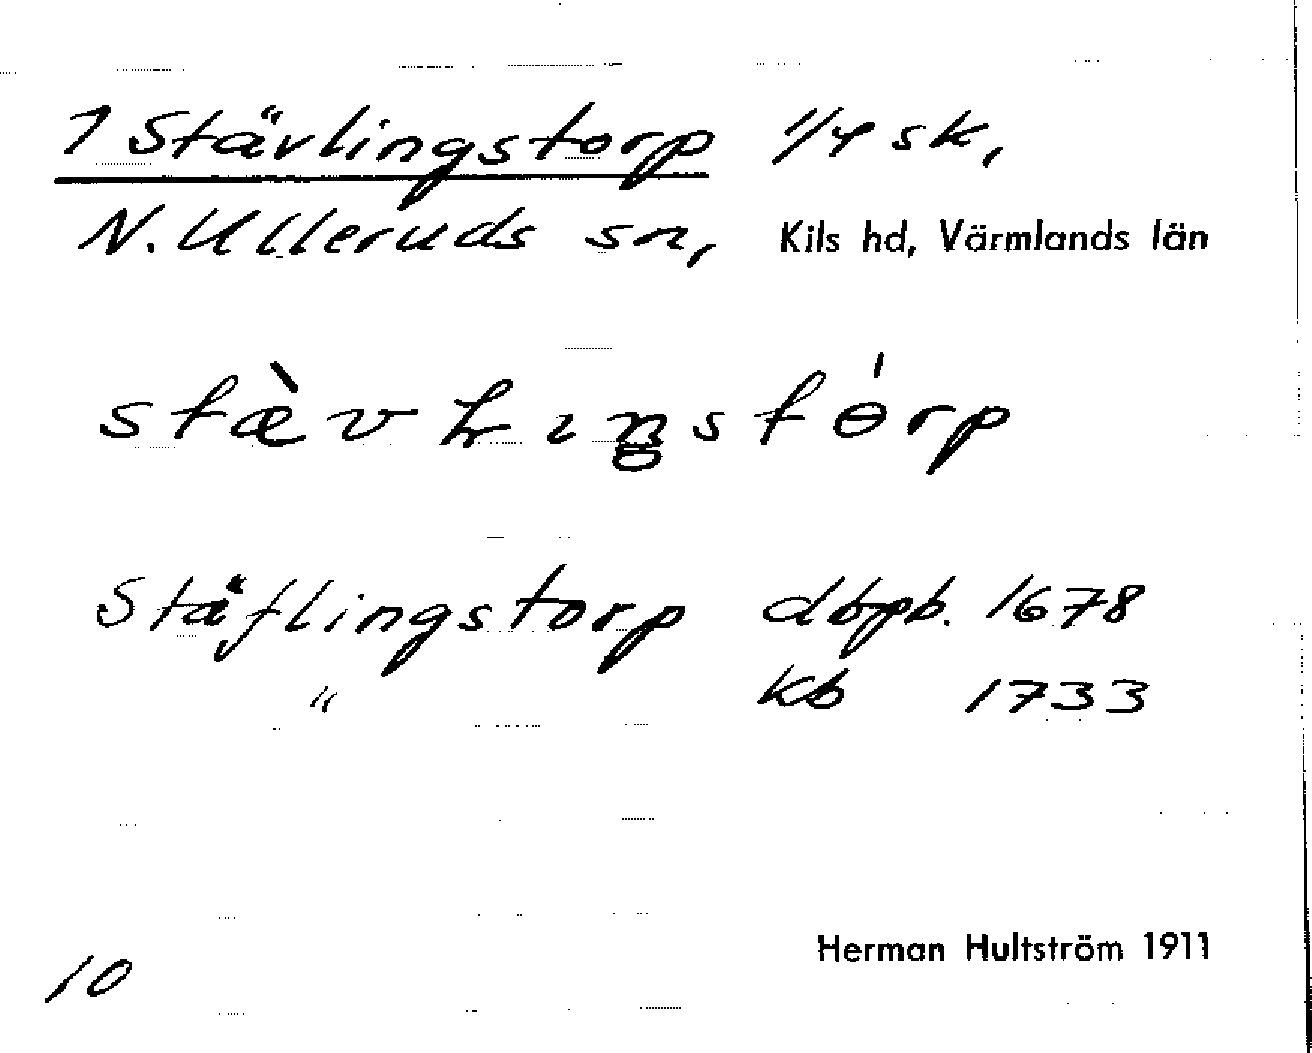 1 Stävlingstorp 1/4 sk,
N. Ulleruds sn, Kils hd, Värmlands län
Stäflingstorp dbpb. 1678
" kb 1733
Herman Hultström 1911
10